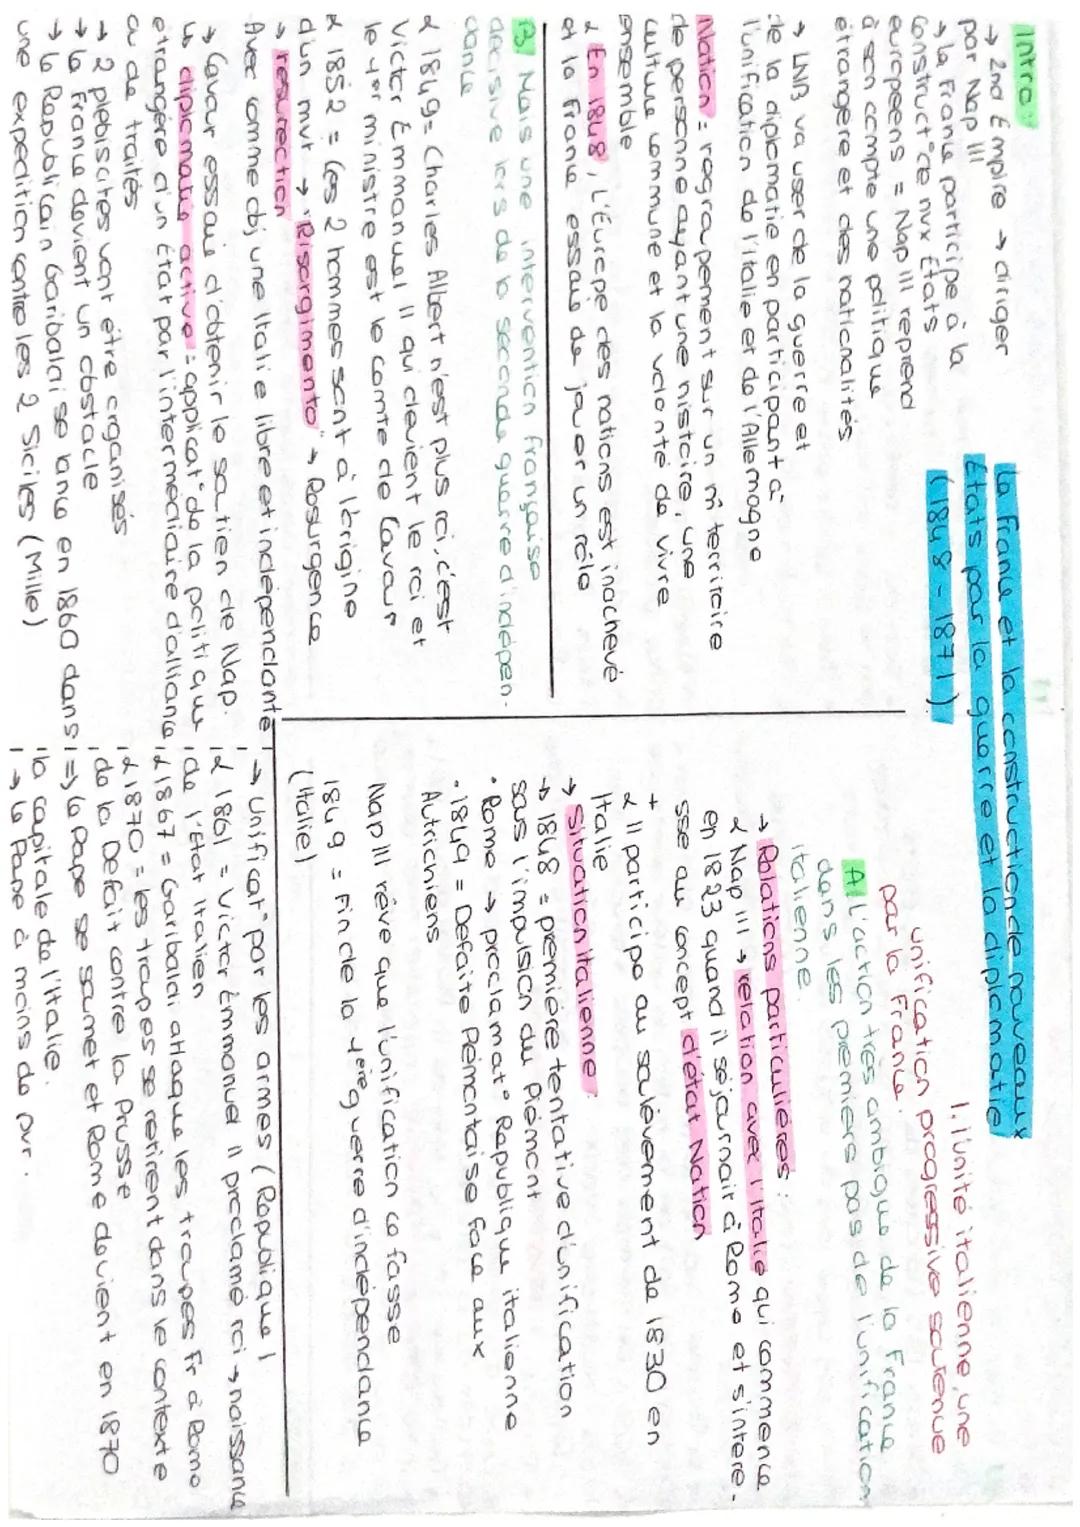 La France et la construction de nouveaux
États par la guerre et la diplomatie
(1848 - 1871)
Intro:
→ 2nd Empire → diriger
par Nap III
→ la France participe à la
construct° de nvx États
européens = Nap III reprend
à son compte une politique
étrangère et des nationalités
→ LNB va user de la guerre et
de la diplomatie en participant à
l'unification de l'Italie et de l'Allemagne
Nation = regroupement sur un m̂ territoire
de personne ayant une histoire, une
culture commune et la volonté de vivre
ensemble
En 1848, L'Europe des nations est inachevé
et la France essaie de jouer un rôle
1. l'unité italienne, une
unification progressive soutenue
par la France.
A| L'action très ambigue de la France
dans les premiers pas de l'unification
italienne.
→ Relations particulières:
Nap III → relation avec l'Italie qui commence
en 1823 quand il séjournair à Rome et s'intere-
sse au concept d'état Nation
+ Il participe au soulèvement de 1830 en
Italie
→ Situation italienne:
→ 1848 = première tentative d'unification
sous l'impulsion du Piémont
• Rome → proclamat° Republique italienne
• 1849 = Defaite Piémontaise face aux
Autrichiens
Nap III rêve que l'unification se fasse
1849 = Fin de la 1ère guerre d'indépendance
(Italie)
B| Mais une intervention française
decisive lors de la seconde guerre d'indépen-
dance
1849 = Charles Albert n'est plus roi, c'est
Victor Emmanuel II qui devient le roi et
le 1er ministre est le comte de Cavour
1852 = Ces 2 hommes sont à l'origine
d'un mvt → "Risorgimento" → Resurgence
→ resurection
Avec comme obj une Italie libre et indépendante
→ Cavour essaie d'obtenir le soutien de Nap.
↳ diplomatie active = applicat° de la politique
étrangère d'un État par l'intermédiaire d'alliance
ou de traités
→ 2 plebiscites vont être organisés
→ la France devient un obstacle
→ Le Republicain Garibaldi se lance en 1860 dans
une expedition contre les 2 Siciles (Mille)
→ Unificat° par les armes (Republique)
1861 = Victor Emmanuel II proclamé roi → naissance
de l'État Italien
1867 = Garibaldi attaque les troupes fr à Rome
1870 = les troupes se retirent dans le contexte
de la Defait contre la Prusse
=> Le Pape se soumet et Rome devient en 1870
la capitale de l'Italie.
→ Le Pape à moins de pvr.